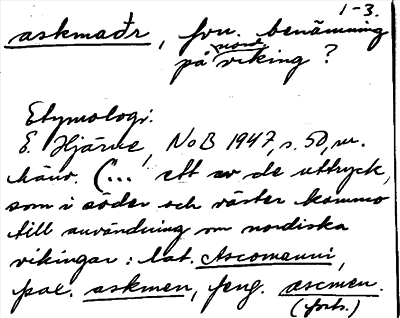 1-3.
askmaðr, fvn. benämning
på nord. viking?
Etymologi:
E. Hjärne, NoB 1947, s. 50, m.
hänv. (... ett av de uttryck,
som i söder och väster kommo
till användning om nordiska
vikingar: lat. Ascomanni,
askmen, feng. æscmen.
(forts.)